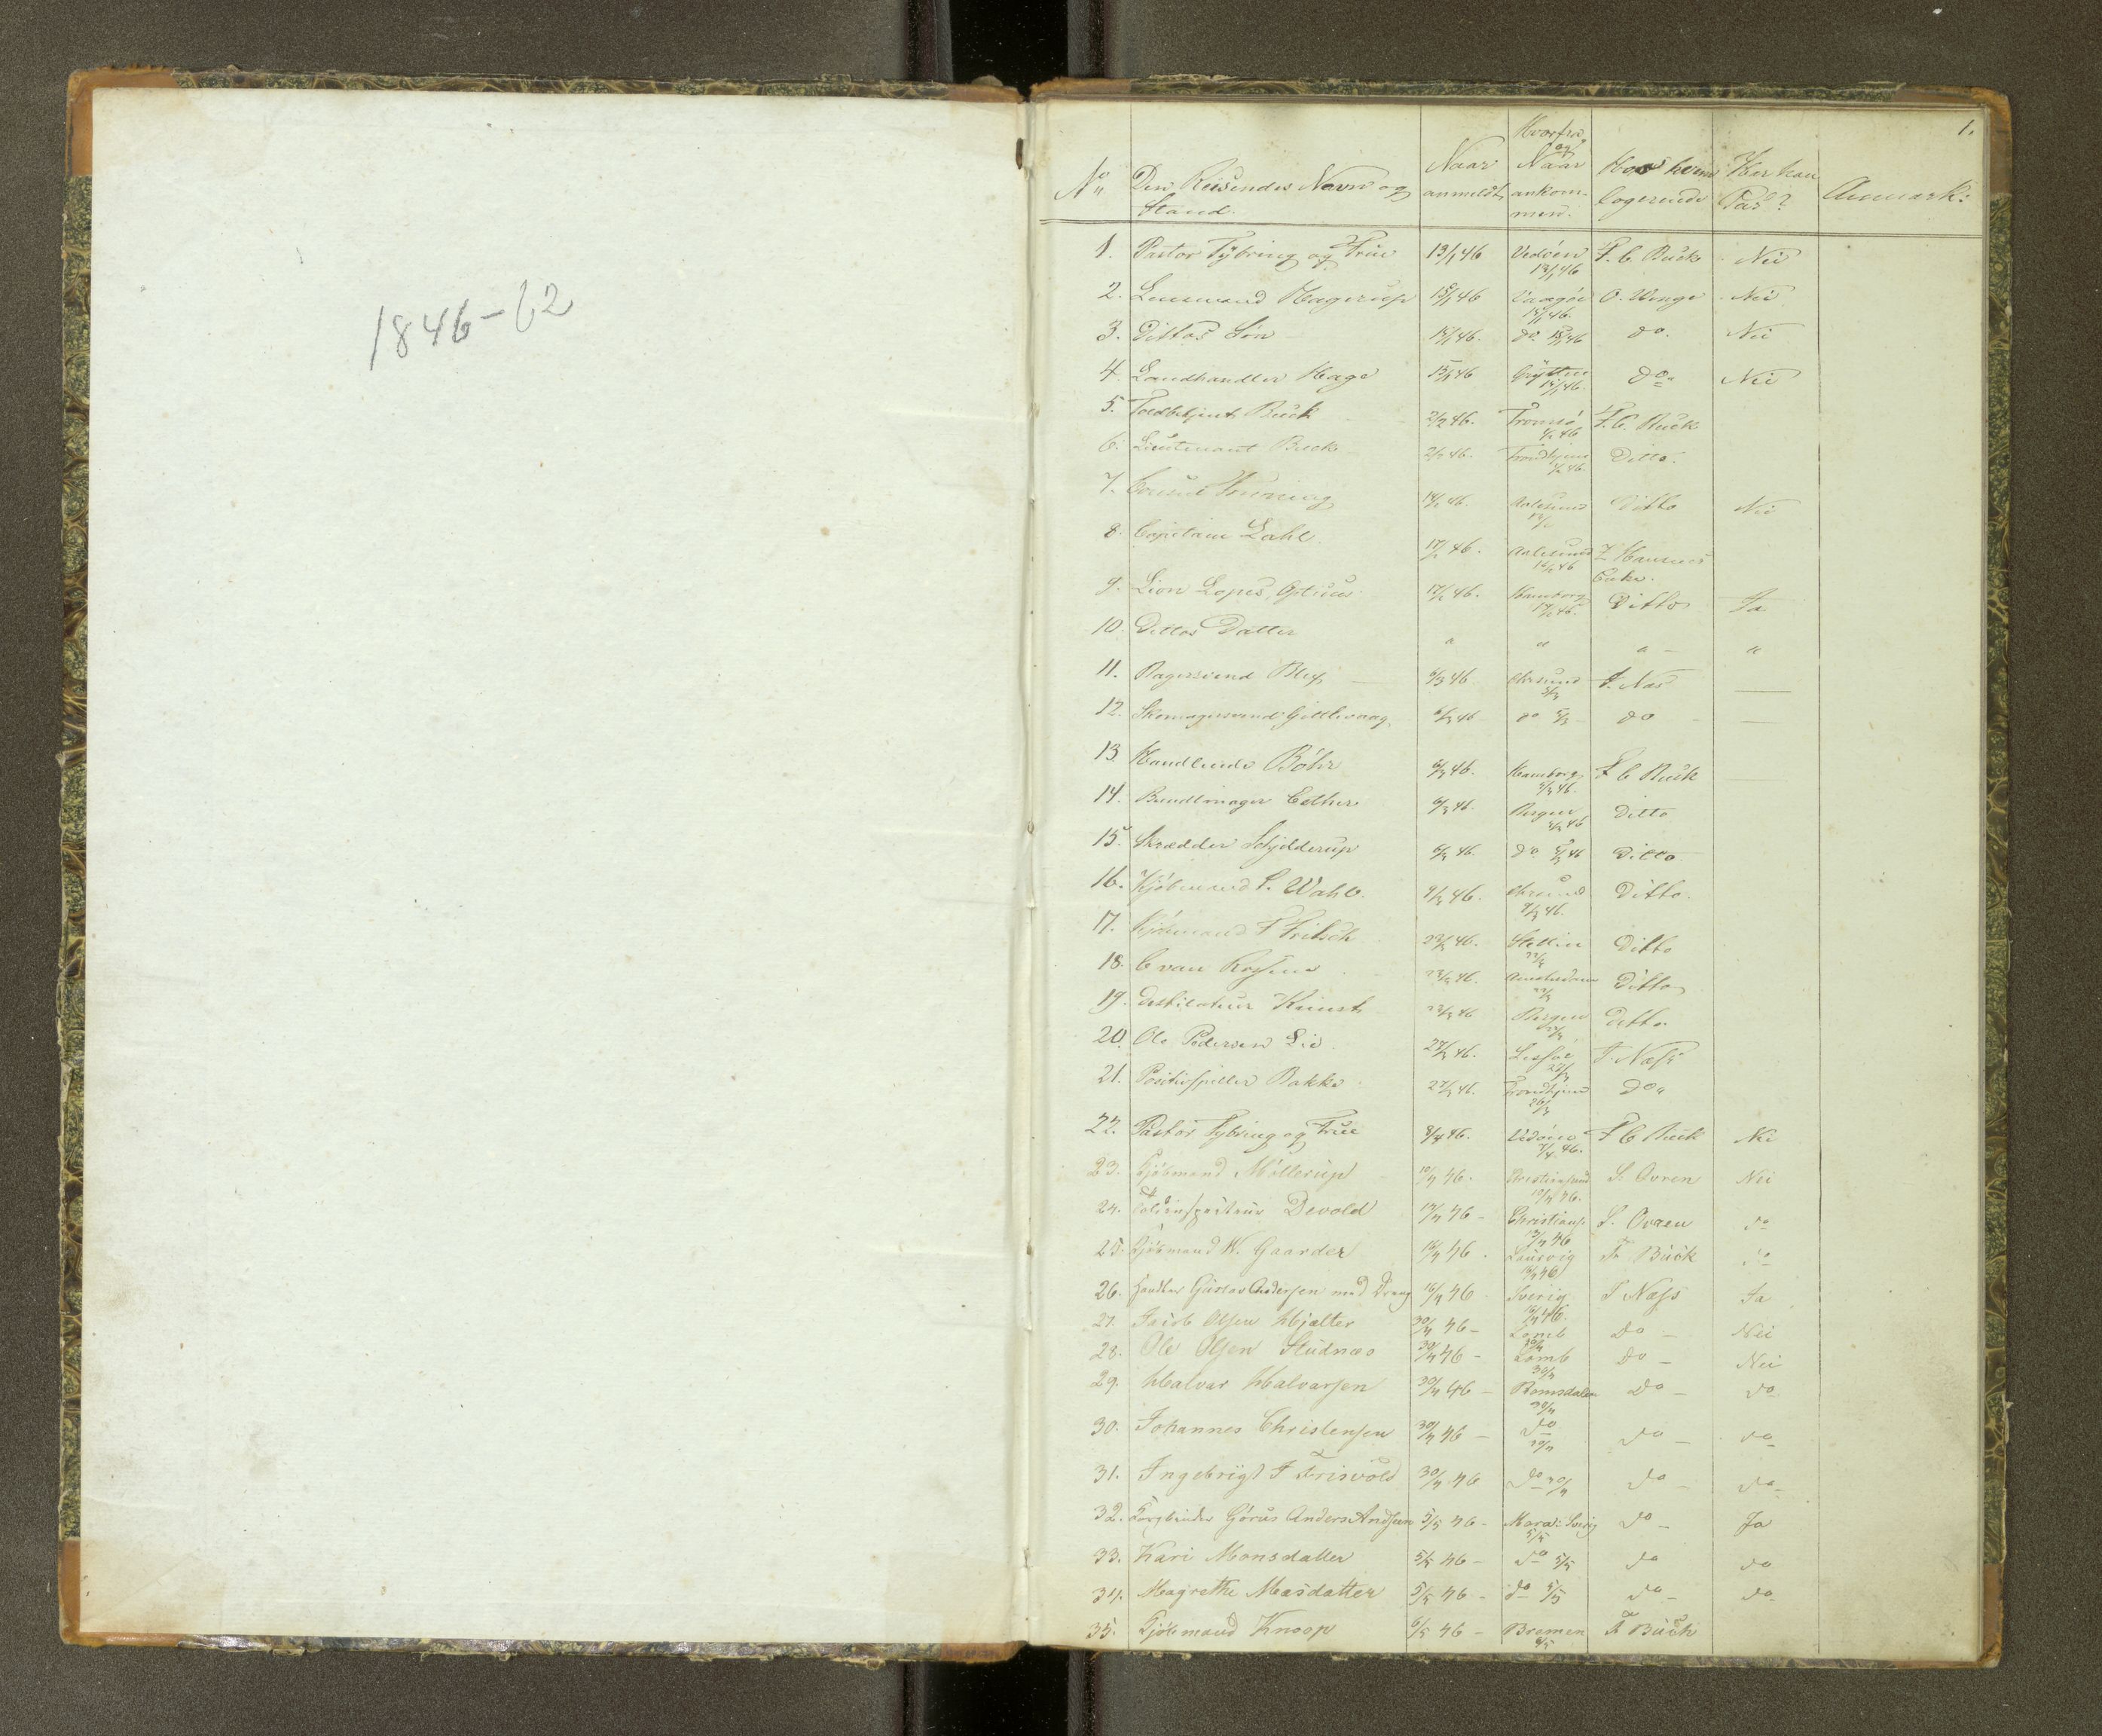 1846-62
1.
No Den Reisendes Navn og Stand. Naar anmeldt, Hvorfra og Naar ankommen. Hos hvem logerende Har han Pas? Anmærk:
1. Pastor Tybring og Frue 13/1 46 Vedöen 13/1 46 F. C. Buck Nei
2. Lensmand Hagerup 15/1 46 Vaagöe 15/1 46. O. Unge Nei
3. Dittos Sön 15/1 46. do 15/1 46 do. Nei
4. Landhandler Hage 15/1 46 Gryttin 15/1 46. do Nei
5. Toldbetjent Buck 2/2 46. Tromsö 1/2 46 F. C. Buck
6. Lieutenant Buck 2/2 46. Trondhjem 1/2 46. Ditto.
7. Consul Fonning 14/2 46. Aalesund Ditto Nei
8. Capitain Dahl 17/2 46. Aalesund 16/2 46 Hansens Enke.
9. Lion Lopes, Opticus 17/2 46. Hamborg 17/2 46. Ditto Ja
10. Dittos Datter " " " "
11. Bagersvend 6/3 46 Chrsund 5/3 F. Næs —
12. Skomagersvend 6/3 46 do 5/3 do —
13. Handlende Böhr 6/3 46. Hamborg F C Buck
14. Bundtmager 6/3 46. Bergen Ditto
15. Skrædder Schjelderup 6/3 46. do 46 Ditto
16. Kjöbmand Wahl. 9/3 46. Chrsund 9/3 46. Ditto.
17. Kjöbmand F Fritsch 23/3 46. Stettin Ditto
18. C van 23/3 46. Amsterdam Ditto
19. Destilateur Kunst 23/3 46 Bergen Ditto
20. Ole Pedersen Lie 27/3 46. Lesjöe F. Næss
21. Positivspiller Bakke 27/3 46. Trondhjem 26/3 do
22. Pastor Tybring og Frue 8/4 46. 7/4 46. F C Buck Nei
23. Kjöbmand Möllerup 10/4 46. Christiansund 10/4 46. S. Owren Nei
24. Toldinspecteur Devold 46 - Christians. 46 S. Owren do
25. Kjöbmand N. Gaarder 46. Laurvig 46 Fr Buck do
26. Handler Gustav Andersen med Dreng 16/4 46 Sverig 16/4 46. F Næss Ja
27. Jacob Olsen Hjelter 30/4 46 - Lomb 30/4 Do - Nei
28. Ole Olsen Studnæs 30/4 46 - Lomb 30/4 Do - Nei
29. Halvar Halvarsen 30/4 46 - Romsdalen 30/4 Do - do
30. Johannes Christensen 30/4 46 - do 30/4 Do - do
31. Ingebrigt F Frisvold 30/4 46 do 30/4 do - do
32. Görus Anders Andsen 5/5 46 - Mora i Sverig 5/5 do - Ja
33. Kari Monsdatter 5/5 46 - do 5/5 do do
34. Magrethe Masdatter 5/5 46 - do 5/5 do - do
35. Kjöbmand Knoop 6/5 46 - Bremen 6/5 Fr Buck